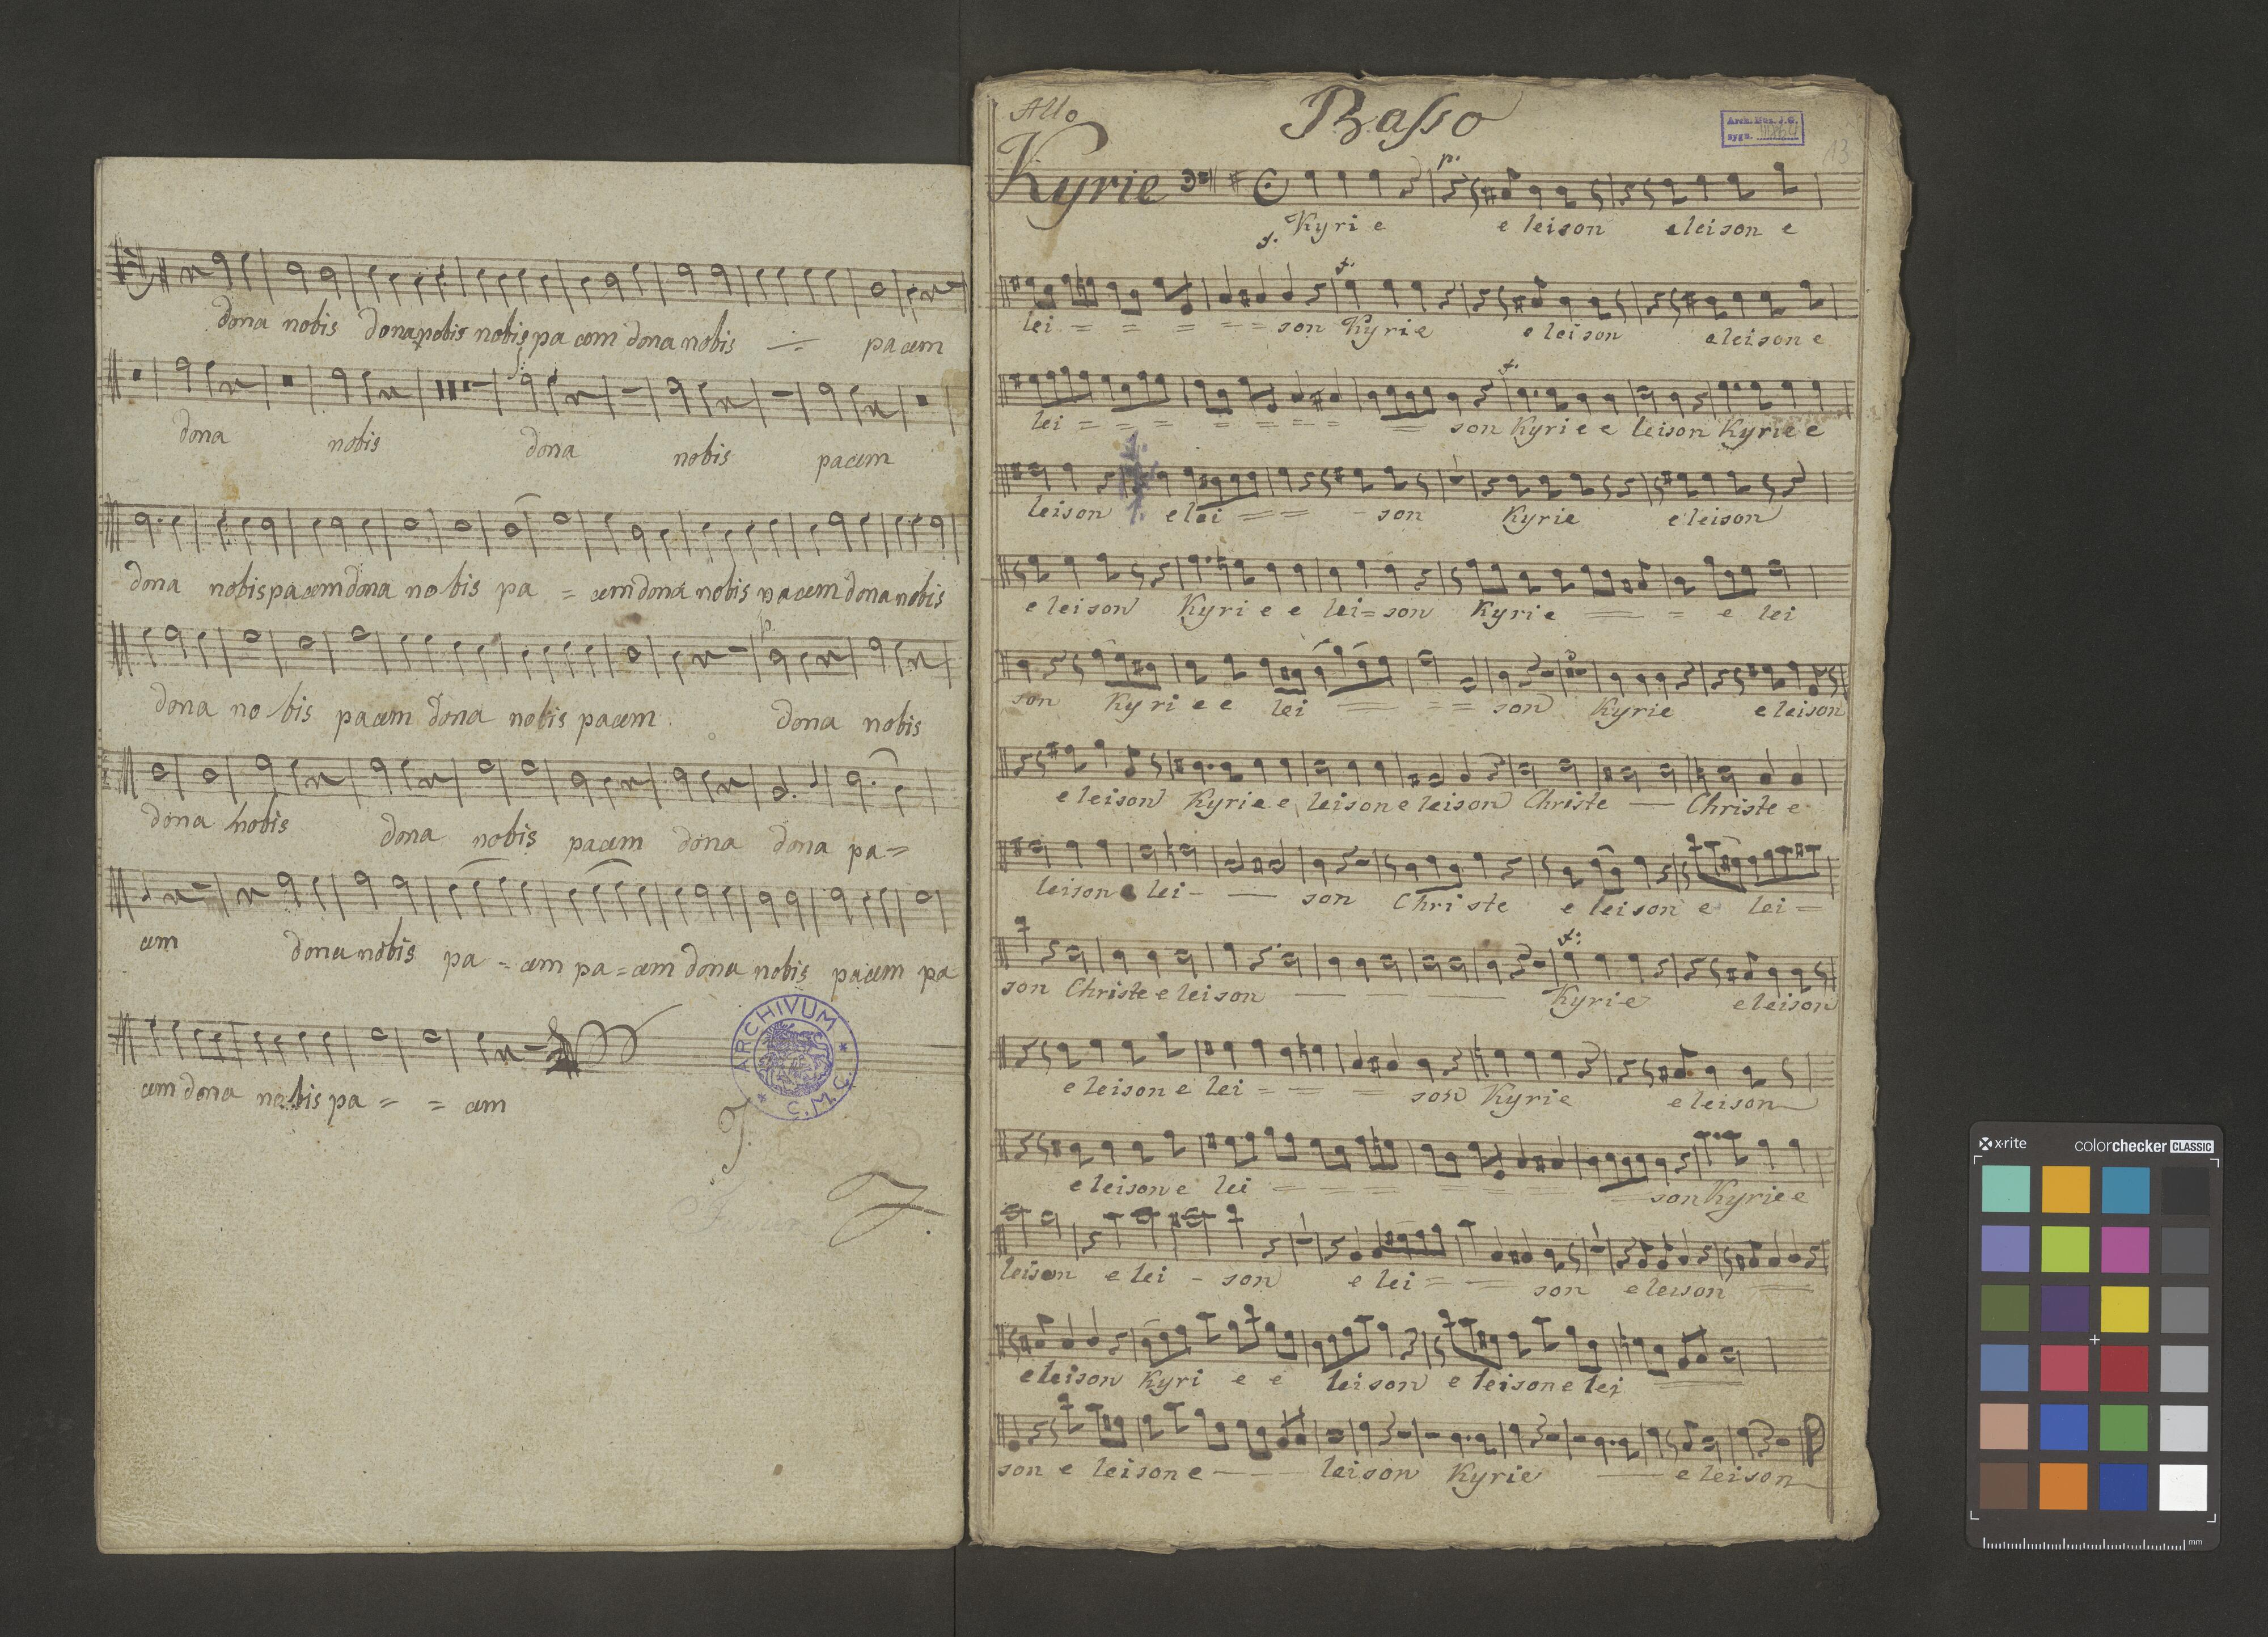 dona nobis dona nobis nobis pa cem dona nobis pacem
dona nobis dona nobis pacem
dona nobis pacem dona no bis pa = cem dona nobis pacem dona nobis
p
dona no bis pacem dona nobis pacem dona nobis
dona nobis dona nobis pacem dona dona pa=
cem dona nobis pa - cem pa=cem dona nobis pacem pa
cem dona nobis pa = = cem
ARCHIVUM * C. M. C. *
Allo
Basso
Arch. Mus. J. G.
sygn.
13
Kyrie
p.
Kyri e e leison eleison e
f.
f.
lei = = = = = son Kyrie e leison eleison e
f.
lei = = = = = = = = son Kyri e e leison Kyrie e
1.
leison e lei = = - son Kyrie eleison
e leison Kyri e e lei=son Kyrie = = e lei
son Kyri e e lei = = = son Kyrie e leison
e leison Kyrie e leison e leison Christe — Christe e
leison e lei - — son Christe e leison e lei =
f:
son Christe e leison — — — Kyrie eleison
e leison e lei = = = son Kyrie e leison
e leison e lei = = = = = = = son Kyrie e
leison e lei - son e lei = — son e leison =
e leison Kyri e e leison e leison e lei =
son e leison e - — — leison Kyrie — e leison
x-rite
colorchecker CLASSIC
mm